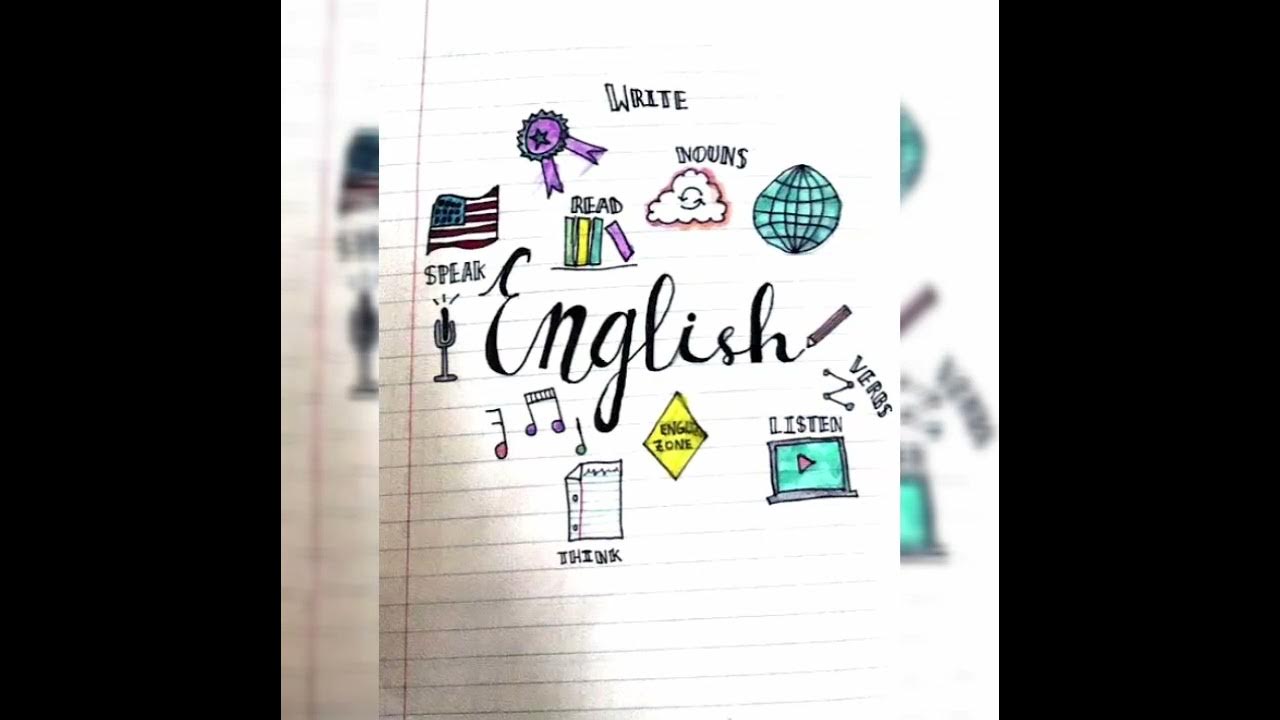 WRITE
NOUNS
READ
SPEAK
English
VERBS
LISTEN
ENGLISH
ZONE
THINK